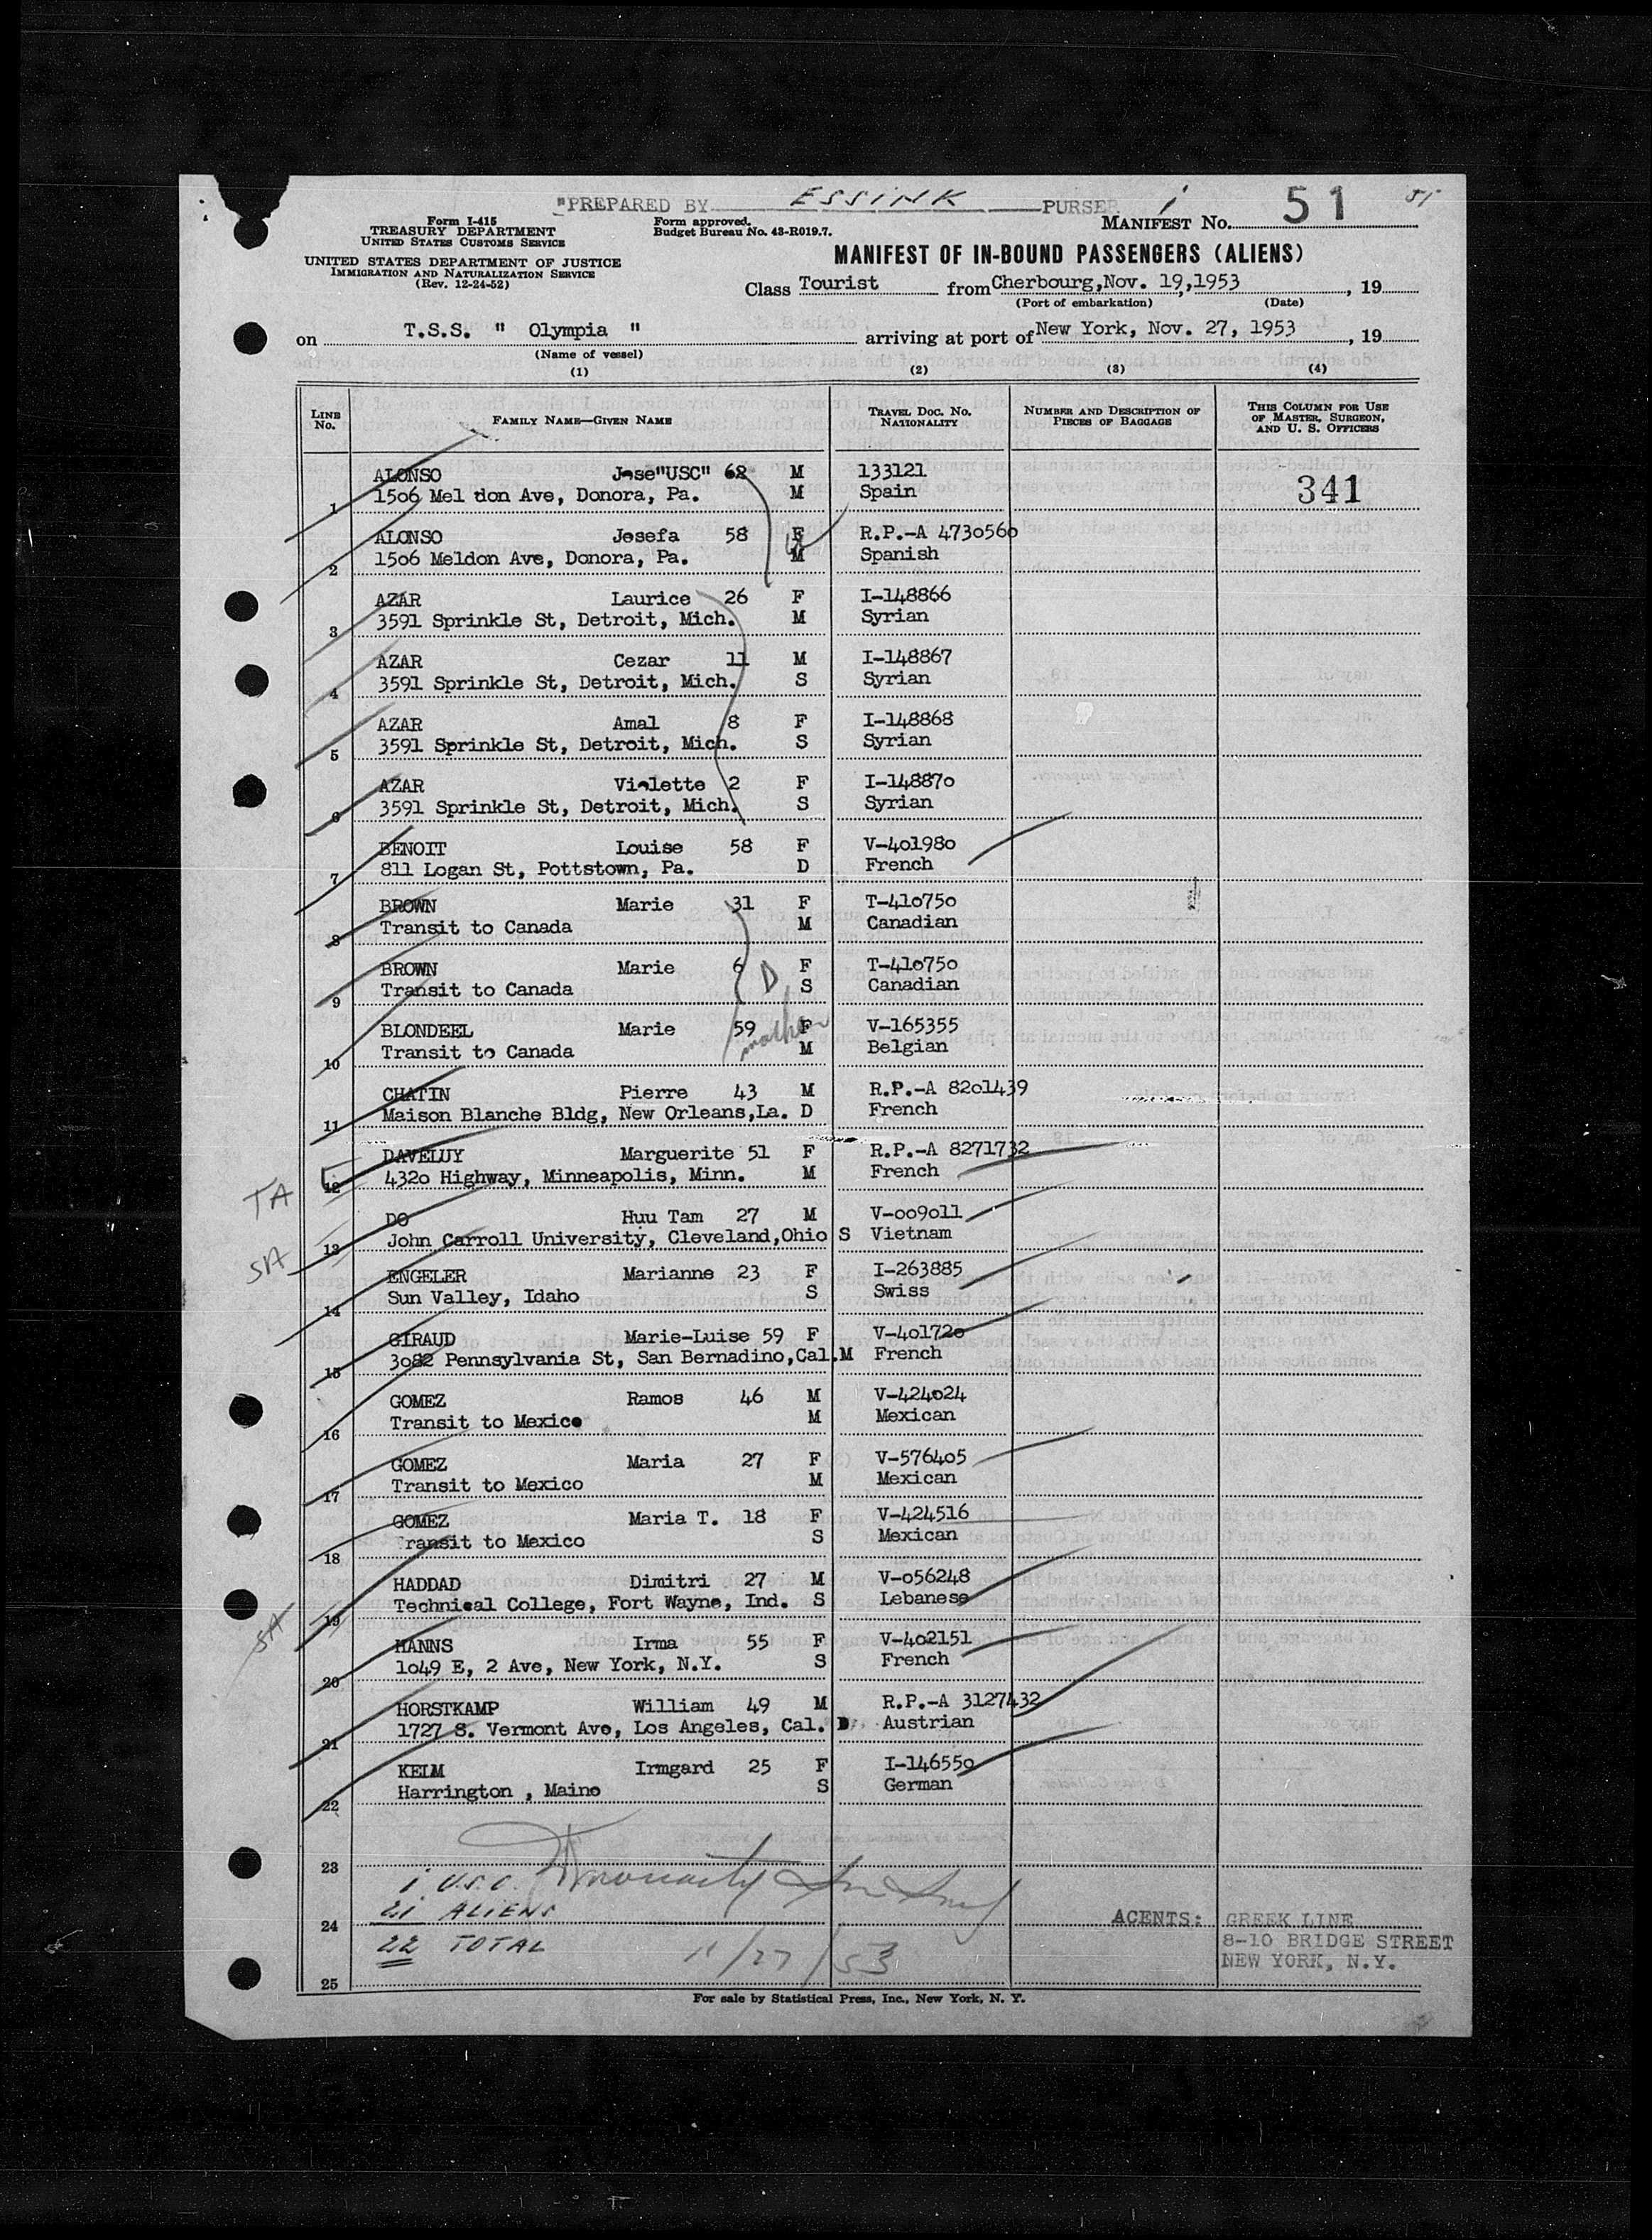 "PREPARED BY ESSINK PURSER 1 MANIFEST No. 51 51
Form I-415
TREASURY DEPARTMENT
UNITED STATES CUSTOMS SERVICE
Form approved.
Budget Bureau No. 43-R019.7.
UNITED STATES DEPARTMENT OF JUSTICE
IMMIGRATION AND NATURALIZATION SERVICE
(Rev. 12-24-52)
MANIFEST OF IN-BOUND PASSENGERS (ALIENS)
Class Tourist from Cherbourg, Nov. 19, 1953, 19
(Port of embarkation) (Date)
on T.S.S. " Olympia " arriving at port of New York, Nov. 27, 1953, 19
(Name of vessel)
(1) (2) (3) (4)
LINE No. FAMILY NAME—GIVEN NAME TRAVEL DOC. No. NATIONALITY NUMBER AND DESCRIPTION OF PIECES OF BAGGAGE THIS COLUMN FOR USE OF MASTER, SURGEON, AND U. S. OFFICERS
ALONSO Jose"USC" 62 M 133121 341
1 1506 Mel don Ave, Donora, Pa. M Spain
ALONSO Josefa 58 F R.P.-A 4730560
2 1506 Meldon Ave, Donora, Pa. M Spanish
AZAR Laurice 26 F I-148866
3 3591 Sprinkle St, Detroit, Mich. M Syrian
AZAR Cezar 11 M I-148867
4 3591 Sprinkle St, Detroit, Mich. S Syrian
AZAR Amal 8 F I-148868
5 3591 Sprinkle St, Detroit, Mich. S Syrian
AZAR Violette 2 F I-148870
6 3591 Sprinkle St, Detroit, Mich. S Syrian
BENOIT Louise 58 F V-401980
7 811 Logan St, Pottstown, Pa. D French
BROWN Marie 31 F T-410750
8 Transit to Canada M Canadian
BROWN Marie 6 D F T-410750
9 Transit to Canada S Canadian
BLONDEEL Marie 59 mother F V-165355
10 Transit to Canada M Belgian
CHATIN Pierre 43 M R.P.-A 8201439
11 Maison Blanche Bldg, New Orleans,La. D French
DAVELUY Marguerite 51 F R.P.-A 8271732
TA 12 4320 Highway, Minneapolis, Minn. M French
DO Huu Tam 27 M V-009011
SA 13 John Carroll University, Cleveland,Ohio S Vietnam
ENGELER Marianne 23 F I-263885
14 Sun Valley, Idaho S Swiss
GIRAUD Marie-Luise 59 F V-401720
15 3082 Pennsylvania St, San Bernadino,Cal.M French
GOMEZ Ramos 46 M V-424024
16 Transit to Mexico M Mexican
GOMEZ Maria 27 F V-576405
17 Transit to Mexico M Mexican
GOMEZ Maria T. 18 F V-424516
18 Transit to Mexico S Mexican
HADDAD Dimitri 27 M V-056248
SA 19 Technical College, Fort Wayne, Ind. S Lebanese
HANNS Irma 55 F V-402151
20 1049 E, 2 Ave, New York, N.Y. S French
HORSTKAMP William 49 M R.P.-A 3127432
21 1727 S. Vermont Ave, Los Angeles, Cal. D Austrian
KELM Irmgard 25 F I-146550
22 Harrington , Maine S German
23
1 U.S.C.
21 ALIENS
24 AGENTS: GREEK LINE
22 TOTAL 11/27/53 8-10 BRIDGE STREET
NEW YORK, N.Y.
25
For sale by Statistical Press, Inc., New York, N. Y.